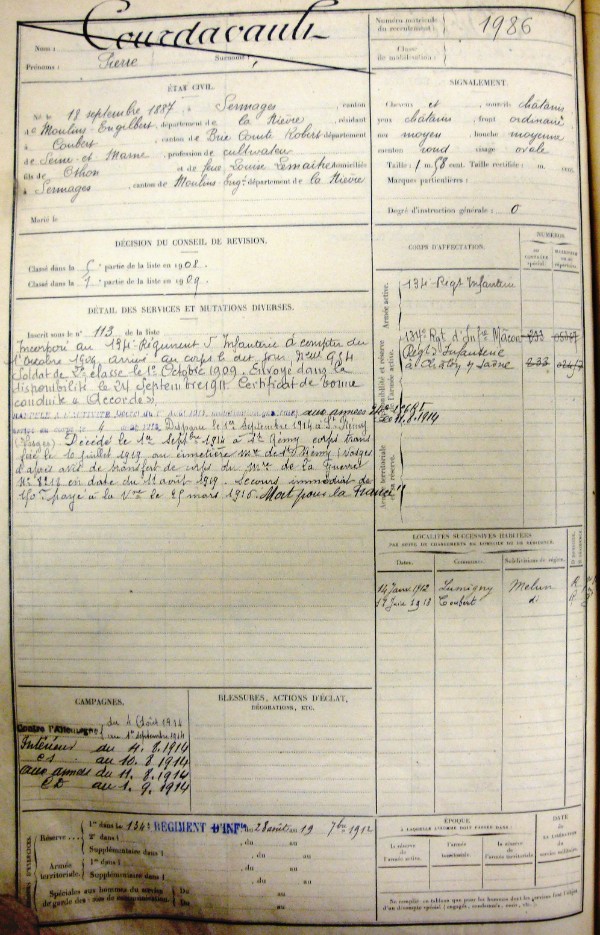 Nom : Courdavault
Prénoms : Pierre Surnoms :
Numéro matricule du recrutement : 1986
Classe de mobilisation :
ÉTAT CIVIL.
Né le 18 septembre 1887, à Sermages, canton
de Moulins-Engilbert, département de la Nièvre, résidant
à Coubert, canton de Brie Comte Robert département
de Seine et Marne, profession de cultivateur
fils de Othon et de feue Louise Lemaitre domiciliés
à Sermages, canton de Moulins-Eng. département de la Nièvre
Marié le
SIGNALEMENT.
Cheveux et sourcils châtains
yeux châtains, front ordinaire
nez moyen, bouche moyenne
menton rond visage ovale
Taille : 1 m. 58 cent. Taille rectifiée : m. cent.
Marques particulières :
Degré d'instruction générale : 0
DÉCISION DU CONSEIL DE REVISION.
Classé dans la 5e partie de la liste en 1908.
Classé dans la 1e partie de la liste en 1909.
DÉTAIL DES SERVICES ET MUTATIONS DIVERSES.
Inscrit sous le n° 113 de la liste
Incorporé au 134e Régiment d'Infanterie à compter du
1er Octobre 1909, arrivé au corps le dit jour,
Soldat de 2e classe le 1er Octobre 1909. Envoyé dans la
disponibilité le 24 Septembre 1911. Certificat de bonne
conduite « Accordé ».
aux armées
11.8.1914
Disparu le 1er Septembre 1914 à St Rémy
(Vosges) Décédé le 1er Septbre 1914 à St Rémy corps trans
féré le 10 juillet 1919 au cimetière de St Rémy (Vosges)
d'après avis de transfert de corps du de la Guerre
en date du août 1919. Secours immédiat de
150 payé à la le 25 mars 1916. Mort pour la France
CORPS D'AFFECTATION.
NUMÉROS
Armée active.
134e Régt Infanterie
Disponibilité et réserve de l'armée active.
134e Rgt d'Infie Mâcon 233
Régt d'Infanterie
233
Armée territoriale et réserve.
LOCALITÉS SUCCESSIVES HABITÉES
PAR SUITE DE CHANGEMENTS DE DOMICILE OU DE RÉSIDENCE.
Dates. Communes. Subdivisions de région.
14 Janv 1912 Lumigny Melun R
1913 Coubert di
CAMPAGNES.
Contre l'Allemagne du 4 Août 1914
au 1er septembre 1914
Intérieur du 4.8.1914
au 10.8.1914
aux armées du 11.8.1914
au 1.9.1914
BLESSURES, ACTIONS D'ÉCLAT,
DÉCORATIONS, ETC.
Réserve
1re dans le 134e RÉGIMENT D'INFie du 28 août au 19 7bre 1912
2e dans l , du au
Supplémentaire dans l , du au
Armée territoriale.
1re dans l , du au
Supplémentaire dans l , du au
Spéciales aux hommes du service
Du au
Du au
ÉPOQUE
À LAQUELLE L'HOMME DOIT PASSER DANS :
la réserve de l'armée active.
l'armée territoriale.
la réserve de l'armée territoriale.
DATE
de LA LIBÉRATION du service militaire.